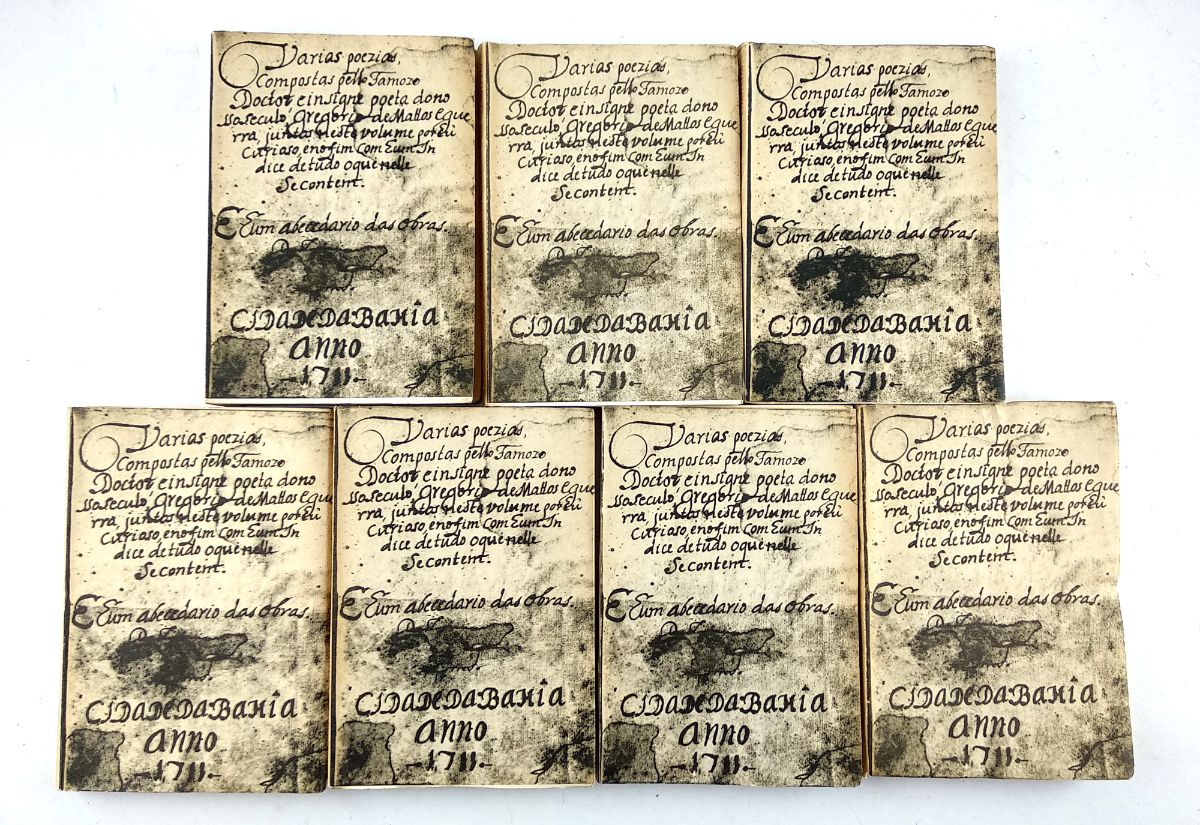 Varias poezias,
Compostas pello Famozo
Doctor e insigne poeta dono
sso seculo, Gregorio de Mattos e gue
rra, juntas neste volume por
Curiozo, e no fim com Eum In
dice de tudo o que nelle
Se contem.
E Eum abecedario das obras.
CIDADE DA BAHIA
ANNO
-1711-
Varias poezias,
Compostas pello Famozo
Doctor e insigne poeta dono
sso seculo, Gregorio de Mattos e gue
rra, juntas neste volume por
Curiozo, e no fim com Eum In
dice de tudo o que nelle
Se contem.
E Eum abecedario das obras.
CIDADE DA BAHIA
ANNO
-1711-
Varias poezias,
Compostas pello Famozo
Doctor e insigne poeta dono
sso seculo, Gregorio de Mattos e gue
rra, juntas neste volume por
Curiozo, e no fim com Eum In
dice de tudo o que nelle
Se contem.
E Eum abecedario das obras.
CIDADE DA BAHIA
ANNO
-1711-
Varias poezias,
Compostas pello Famozo
Doctor e insigne poeta dono
sso seculo, Gregorio de Mattos e gue
rra, juntas neste volume por
Curiozo, e no fim com Eum In
dice de tudo o que nelle
Se contem.
E Eum abecedario das obras.
CIDADE DA BAHIA
ANNO
-1711-
Varias poezias,
Compostas pello Famozo
Doctor e insigne poeta dono
sso seculo, Gregorio de Mattos e gue
rra, juntas neste volume por
Curiozo, e no fim com Eum In
dice de tudo o que nelle
Se contem.
E Eum abecedario das obras.
CIDADE DA BAHIA
ANNO
-1711-
Varias poezias,
Compostas pello Famozo
Doctor e insigne poeta dono
sso seculo, Gregorio de Mattos e gue
rra, juntas neste volume por
Curiozo, e no fim com Eum In
dice de tudo o que nelle
Se contem.
E Eum abecedario das obras.
CIDADE DA BAHIA
ANNO
-1711-
Varias poezias,
Compostas pello Famozo
Doctor e insigne poeta dono
sso seculo, Gregorio de Mattos e gue
rra, juntas neste volume por
Curiozo, e no fim com Eum In
dice de tudo o que nelle
Se contem.
E Eum abecedario das obras.
CIDADE DA BAHIA
ANNO
-1711-